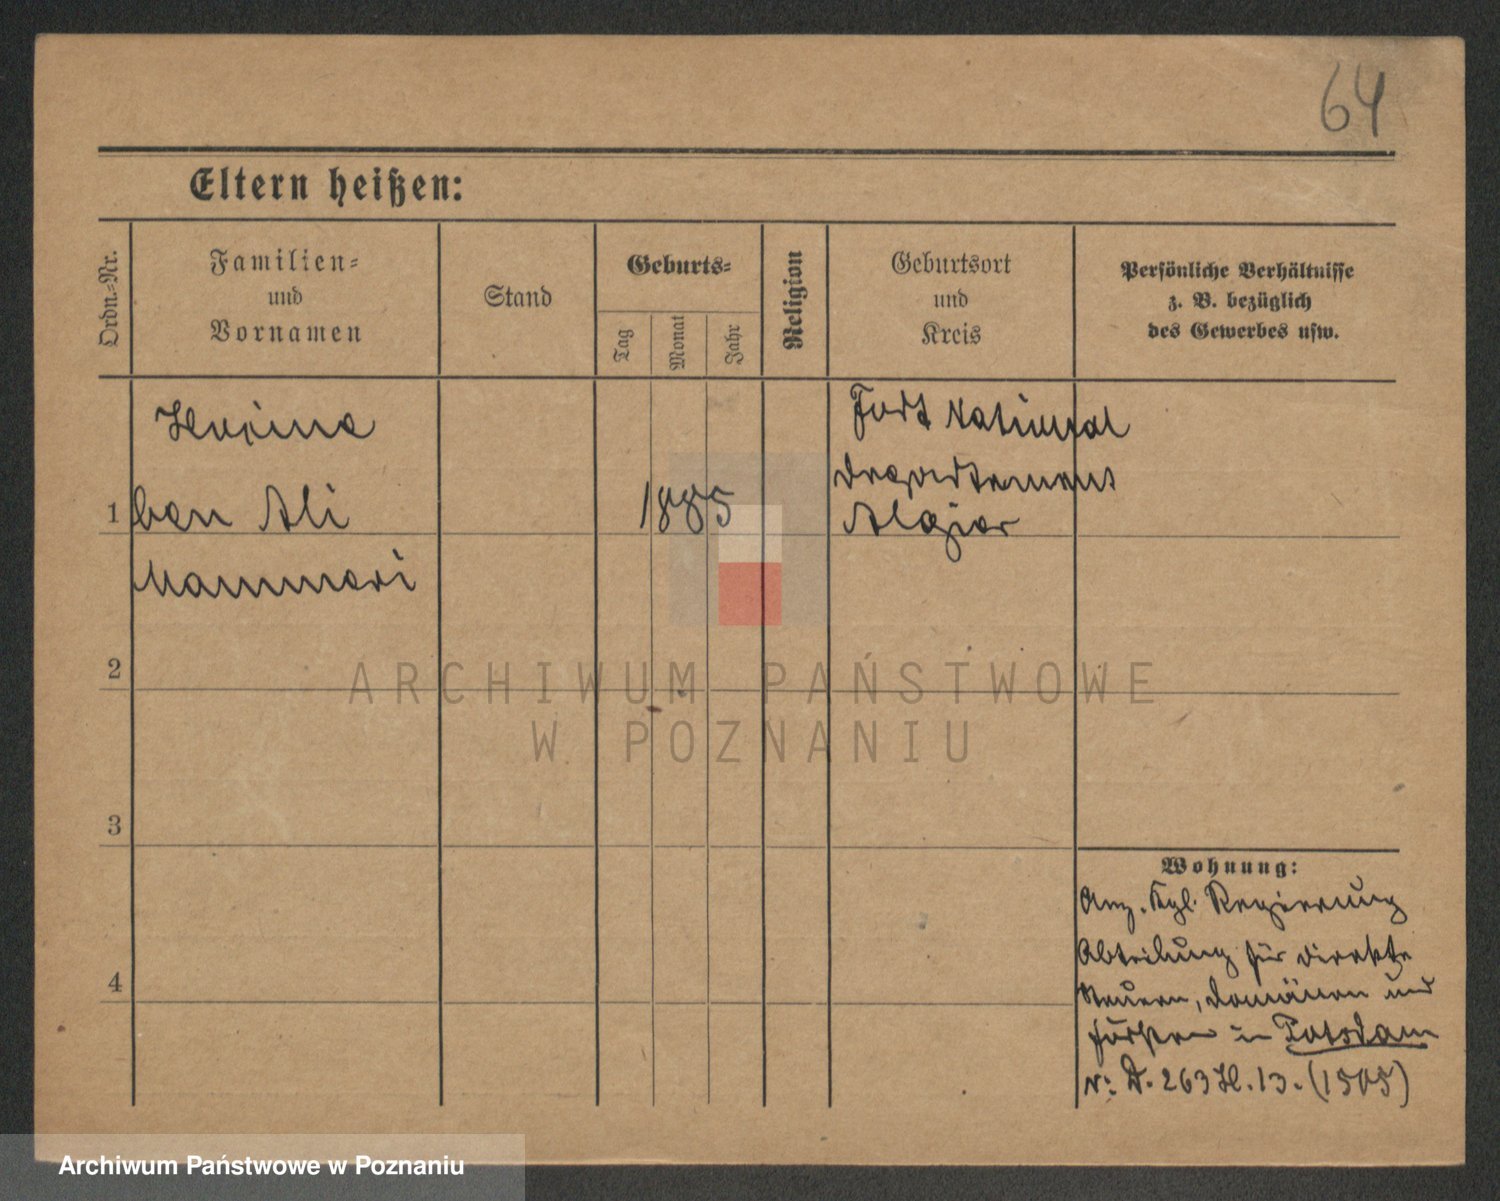 64
Eltern heißen:
Ordn.-Nr.
Familien-
und
Vornamen
Stand
Geburts-
Tag
Monat
Jahr
Religion
Geburtsort
und
Kreis
Persönliche Verhältnisse
z. B. bezüglich
des Gewerbes usw.
Fort National
1
ben Ali
1885
Departement
Algier
Mammeri
2
ARCHIWUM PAŃSTWOWE
W POZNANIU
3
Wohnung:
Anz. Kgl. Regierung
Abteilung für direkte
Steuern, Domänen und
4
Forsten in Potsdam
Nr: D. 263 H. 13. (1505)
Archiwum Państwowe w Poznaniu